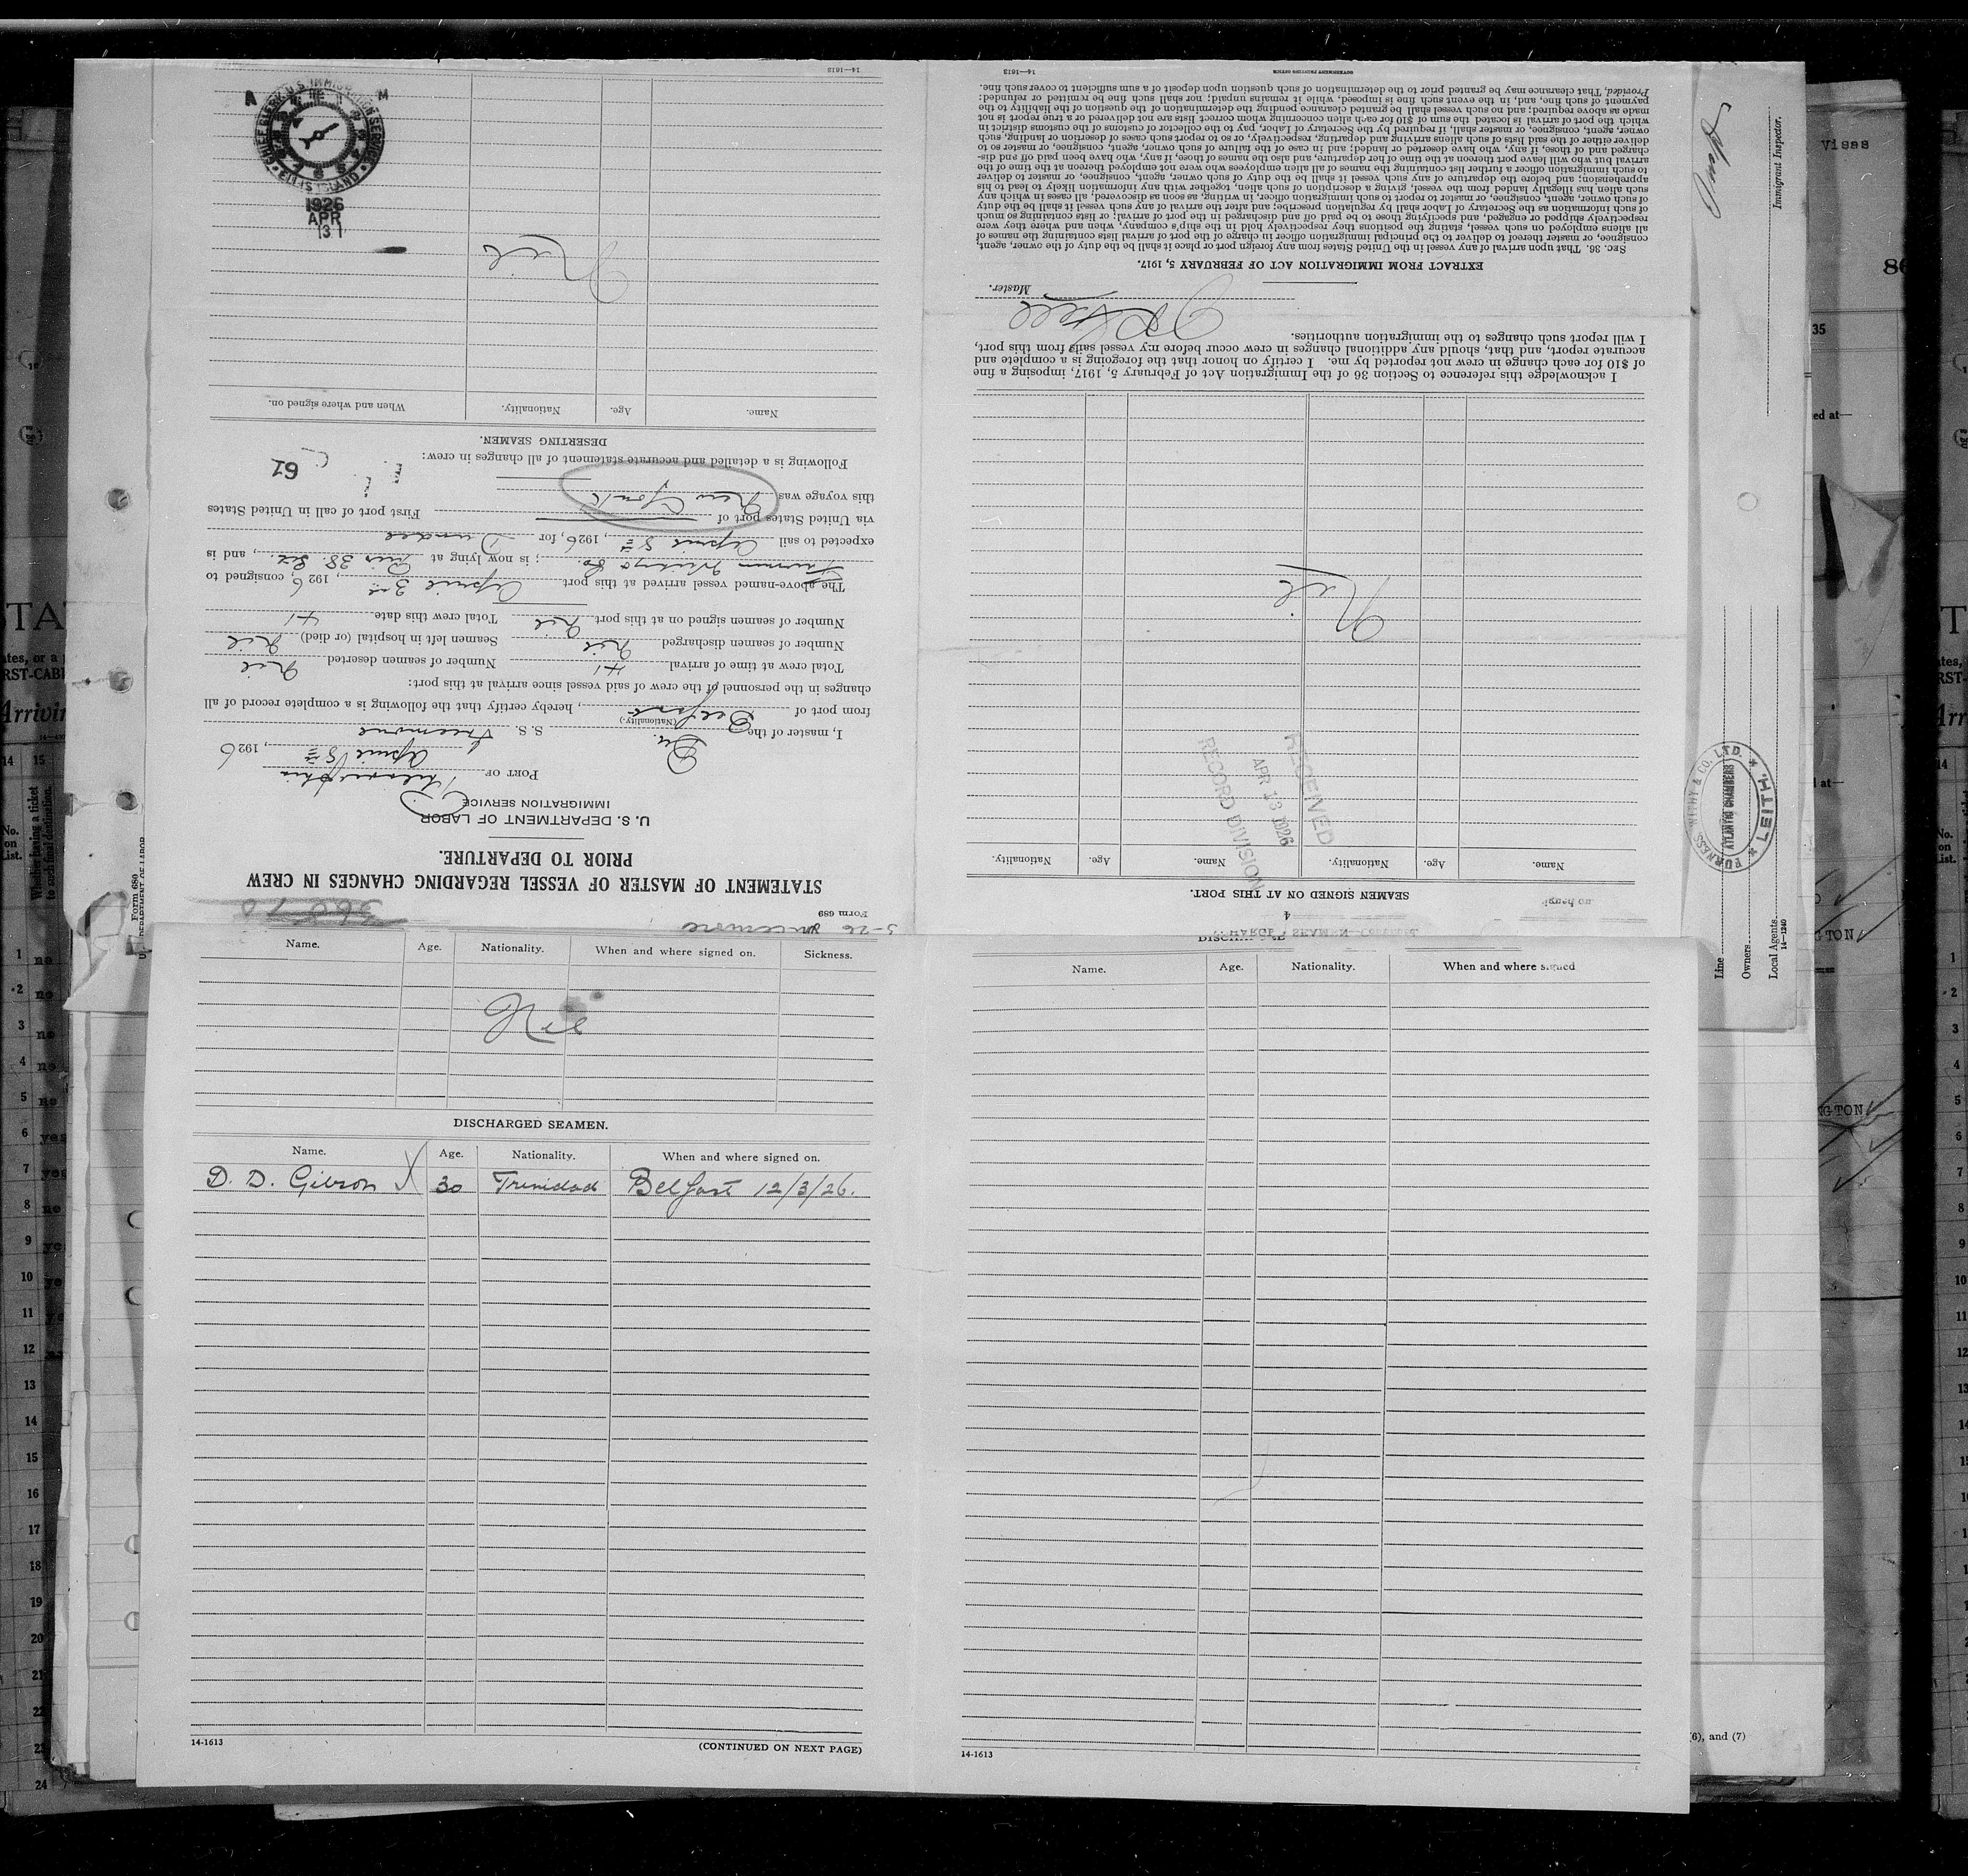 Form 689
STATEMENT OF MASTER OF VESSEL REGARDING CHANGES IN CREW
PRIOR TO DEPARTURE.
U. S. DEPARTMENT OF LABOR
IMMIGRATION SERVICE
PORT OF Philadelphia
April 8th, 1926
I, master of the Br. S. S. Incemore
(Nationality.)
from port of Belfast, hereby certify that the following is a complete record of all
changes in the personnel of the crew of said vessel since arrival at this port:
Total crew at time of arrival 41 Number of seamen deserted Nil
Number of seamen discharged Nil Seamen left in hospital (or died) Nil
Number of seamen signed on at this port Nil Total crew this date 41
The above-named vessel arrived at this port April 3rd, 1926, consigned to
Furness Withy & Co.; is now lying at Pier 38. So., and is
expected to sail April 8th, 1926, for Dundee
via United States port of First port of call in United States
this voyage was New York
Following is a detailed and accurate statement of all changes in crew:
61
DESERTING SEAMEN.
Name. Age. Nationality. When and where signed on.
Nil
CHIEF CLERK U.S. IMMIGRATION SERVICE
ELLIS ISLAND
A M
1926
APR
13 1
14—1613
4
SEAMEN SIGNED ON AT THIS PORT.
Name. Age. Nationality. Name. Age. Nationality.
RECEIVED
APR 13 1926
RECORD DIVISION
Nil
I acknowledge this reference to Section 36 of the Immigration Act of February 5, 1917, imposing a fine
of $10 for each change in crew not reported by me. I certify on honor that the foregoing is a complete and
accurate report, and that, should any additional changes in crew occur before my vessel sails from this port,
I will report such changes to the immigration authorities.
Master.
EXTRACT FROM IMMIGRATION ACT OF FEBRUARY 5, 1917.
SEC. 36. That upon arrival of any vessel in the United States from any foreign port or place it shall be the duty of the owner, agent,
consignee, or master thereof to deliver to the principal immigration officer in charge of the port of arrival lists containing the names of
all aliens employed on such vessel, stating the positions they respectively hold in the ship's company, when and where they were
respectively shipped or engaged, and specifying those to be paid off and discharged in the port of arrival; or lists containing so much
of such information as the Secretary of Labor shall by regulation prescribe; and after the arrival of any such vessel it shall be the duty
of such owner, agent, consignee, or master to report to such immigration officer, in writing, as soon as discovered, all cases in which any
such alien has illegally landed from the vessel, giving a description of such alien, together with any information likely to lead to his
apprehension; and before the departure of any such vessel it shall be the duty of such owner, agent, consignee, or master to deliver
to such immigration officer a further list containing the names of all alien employees who were not employed thereon at the time of the
arrival but who will leave port thereon at the time of her departure, and also the names of those, if any, who have been paid off and dis-
charged and of those, if any, who have deserted or landed; and in case of the failure of such owner, agent, consignee, or master so to
deliver either of the said lists of such aliens arriving and departing, respectively, or so to report such cases of desertion or landing, such
owner, agent, consignee, or master shall, if required by the Secretary of Labor, pay to the collector of customs of the customs district in
which the port of arrival is located the sum of $10 for each alien concerning whom correct lists are not delivered or a true report is not
made as above required; and no such vessel shall be granted clearance pending the determination of the question of the liability to the
payment of such fine, and, in the event such fine is imposed, while it remains unpaid; nor shall such fine be remitted or refunded:
Provided, That clearance may be granted prior to the determination of such question upon deposit of a sum sufficient to cover such fine.
GOVERNMENT PRINTING OFFICE
14—1613
Name. Age. Nationality. When and where signed on. Sickness.
Nil
DISCHARGED SEAMEN.
Name. Age. Nationality. When and where signed on.
D. D. Gibson X 30 Trinidad Belfast 12/3/26.
14-1613
(CONTINUED ON NEXT PAGE)
Name. Age. Nationality. When and where signed
14-1613
Immigrant Inspector.
FURNESS, WITHY & CO. LTD.
ATLANTIC CHAMBERS
LEITH
Line
Owners
Local Agents
14-1240
Form 680
Visas
(6), and (7)